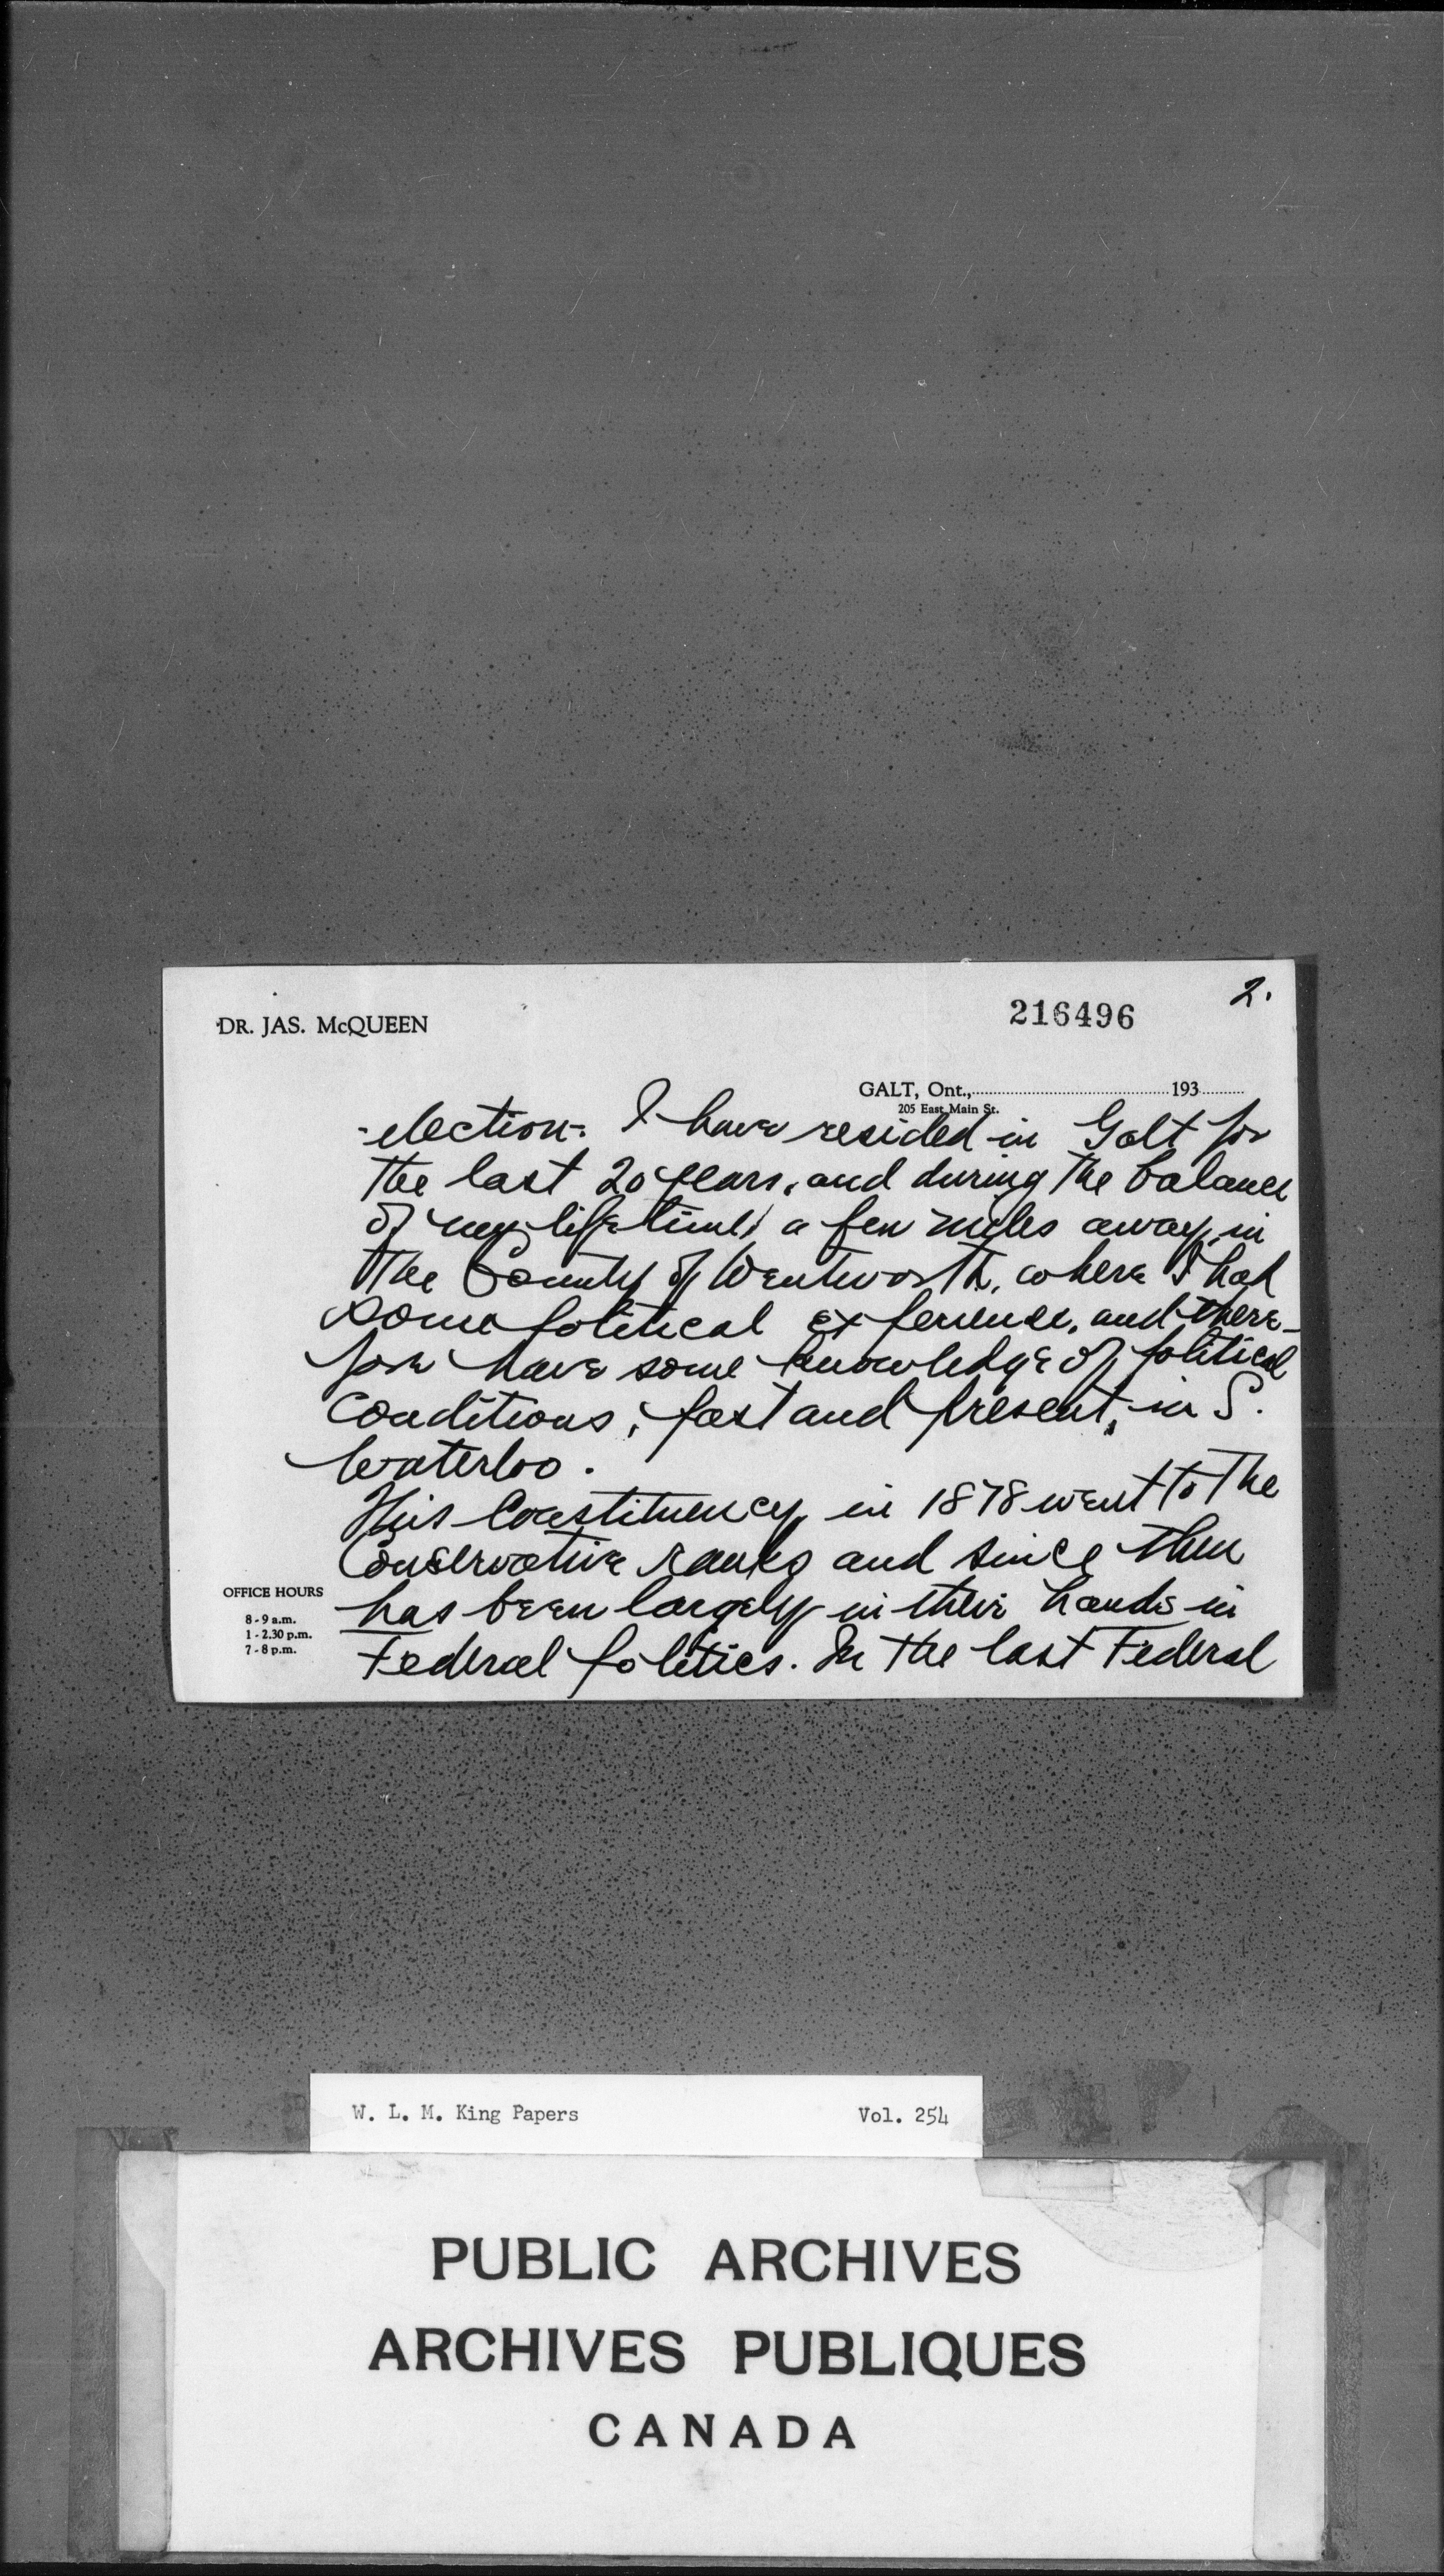 2.
216496
DR. JAS. McQUEEN
GALT, Ont., 193
205 East Main St.
-election. I have resided in Galt for
the last 20 years, and during the balance
of my lifetime, a few miles away, in
the County of Wentworth, where I had
some political experience, and there-
fore have some knowledge of political
conditions, past and present, in S.
Waterloo.
This Constituency in 1878 went to the
Conservative ranks and since then
has been largely in their hands in
Federal politics. In the last Federal
OFFICE HOURS
8-9 a.m.
1-2.30 p.m.
7-8 p.m.
W. L. M. King Papers Vol. 254
PUBLIC ARCHIVES
ARCHIVES PUBLIQUES
CANADA